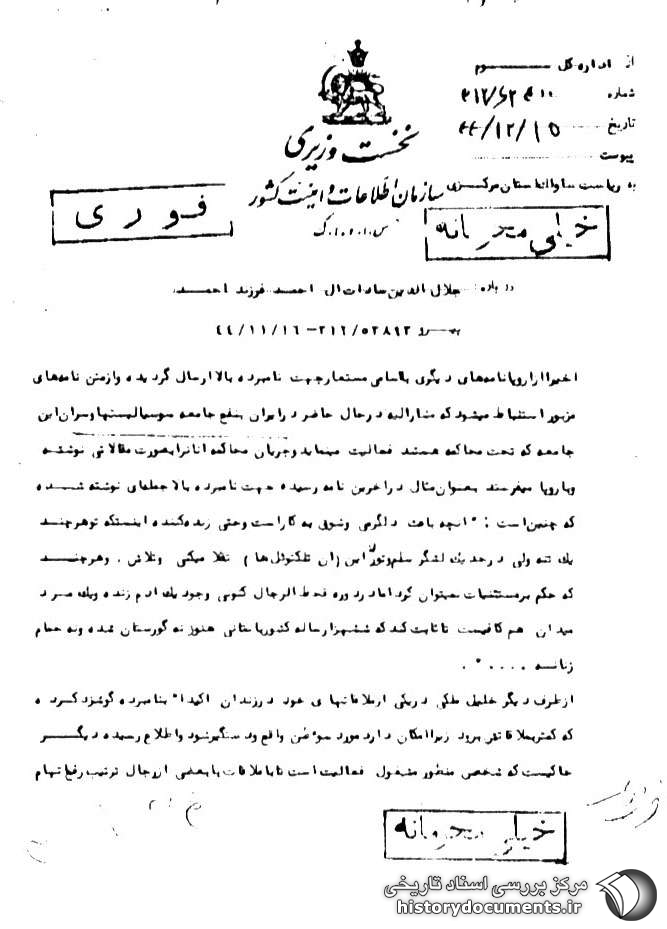 از اداره کل سوم
شماره ۳۱۲/
تاریخ ۴۴/۱۲/۱۵
پیوست
به ریاست ساواک استان مرکزی
نخست وزیری
سازمان اطلاعات و امنیت کشور
س.ا.و.ا.ک
فوری
خیلی محرمانه
درباره: جلال الدین سادات ال احمد فرزند احمد
پیرو ۳۱۲/۵۲۸۹۳ - ۴۴/۱۱/۱۶
اخیرا از اروپا نامه‌های دیگری با اسامی مستعار جهت نامبرده بالا ارسال گردیده و از متن نامه‌های
مزبور استنباط میشود که مشارالیه در حال حاضر در ایران بنفع جامعه سوسیالیستها و سران این
جامعه که تحت محاکمه هستند فعالیت مینماید و جریان محاکمه انانرا بصورت مقالاتی نوشته
و باروپا میفرستد بعنوان مثال در اخرین نامه رسیده جهت نامبرده بالا جمله‌ای نوشته شده
که چنین است : " انچه باعث دلگرمی وشوق به کار است وحتی زنده‌کننده اینستکه تو هرچند
یك تنه ولی در حد یك لشگر سلم و تور این (ان تلکتوئل‌ها ) تقلا میکنی وتلاش . وهرچند
که حکم بر مستثنیات نمیتوان کرد اما در دوره قحط الرجال کنونی وجود یك ادم زنده ویك مرد
میدان هم کافیست تا ثابت کند که ششهزار ساله کشور باستانی هنوز نه گورستان شده ونه حمام
زنانه .... " .
از طرف دیگر خلیل ملکی در یکی از ملاقاتهای خود در زندان اکیدا" بنامبرده گوشزد کرده
که کمتر بملاقاتش برود زیرا امکان دارد مورد سوءظن واقع ودستگیر شود واطلاع رسیده دیگر
حاکیست که شخصی منظور مشغول فعالیت است تا با ملاقات با بعضی از رجال ترتیب رفع اتهام
خیلی محرمانه
مرکز بررسی اسناد تاریخی
historydocuments.ir